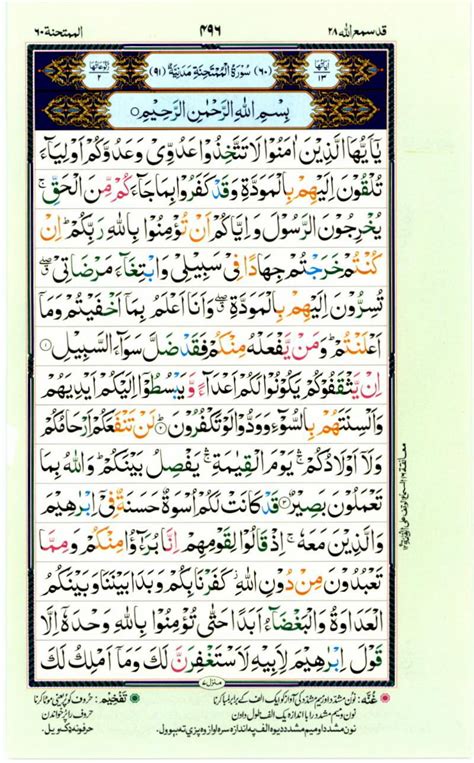 قد سمع الله ٢٨
۴۹۶
الممتحنة ٦٠
اٰيَاتُهَا ١٣
(٦٠) سُوْرَةُ الْمُمْتَحِنَةِ مَدَنِيَّةٌ (٩١)
رُكُوْعَاتُهَا ٢
بِسْمِ اللهِ الرَّحْمٰنِ الرَّحِيْمِ
يٰۤاَيُّهَا الَّذِيْنَ اٰمَنُوْا لَا تَتَّخِذُوْا عَدُوِّيْ وَعَدُوَّكُمْ اَوْلِيَآءَ
تُلْقُوْنَ اِلَيْهِمْ بِالْمَوَدَّةِ وَقَدْ كَفَرُوْا بِمَا جَآءَكُمْ مِّنَ الْحَقِّ ۚ
يُخْرِجُوْنَ الرَّسُوْلَ وَاِيَّاكُمْ اَنْ تُؤْمِنُوْا بِاللهِ رَبِّكُمْ ؕ اِنْ
كُنْتُمْ خَرَجْتُمْ جِهَادًا فِيْ سَبِيْلِيْ وَابْتِغَآءَ مَرْضَاتِيْ ۖ
تُسِرُّوْنَ اِلَيْهِمْ بِالْمَوَدَّةِ ۖ وَاَنَا اَعْلَمُ بِمَاۤ اَخْفَيْتُمْ وَمَاۤ
اَعْلَنْتُمْ ؕ وَمَنْ يَّفْعَلْهُ مِنْكُمْ فَقَدْ ضَلَّ سَوَآءَ السَّبِيْلِ ۝۱
اِنْ يَّثْقَفُوْكُمْ يَكُوْنُوْا لَكُمْ اَعْدَآءً وَّيَبْسُطُوْۤا اِلَيْكُمْ اَيْدِيَهُمْ
وَاَلْسِنَتَهُمْ بِالسُّوْٓءِ وَوَدُّوْا لَوْ تَكْفُرُوْنَ ۝۲ لَنْ تَنْفَعَكُمْ اَرْحَامُكُمْ
وَلَاۤ اَوْلَادُكُمْ ۚ يَوْمَ الْقِيٰمَةِ ۚ يَفْصِلُ بَيْنَكُمْ ؕ وَاللهُ بِمَا
تَعْمَلُوْنَ بَصِيْرٌ ۝۳ قَدْ كَانَتْ لَكُمْ اُسْوَةٌ حَسَنَةٌ فِيْۤ اِبْرٰهِيْمَ
وَالَّذِيْنَ مَعَهٗ ۚ اِذْ قَالُوْا لِقَوْمِهِمْ اِنَّا بُرَءٰٓؤُا مِنْكُمْ وَمِمَّا
تَعْبُدُوْنَ مِنْ دُوْنِ اللهِ ۫ كَفَرْنَا بِكُمْ وَبَدَا بَيْنَنَا وَبَيْنَكُمُ
الْعَدَاوَةُ وَالْبَغْضَآءُ اَبَدًا حَتّٰى تُؤْمِنُوْا بِاللهِ وَحْدَهٗۤ اِلَّا
قَوْلَ اِبْرٰهِيْمَ لِاَبِيْهِ لَاَسْتَغْفِرَنَّ لَكَ وَمَاۤ اَمْلِكُ لَكَ
منزل ۷